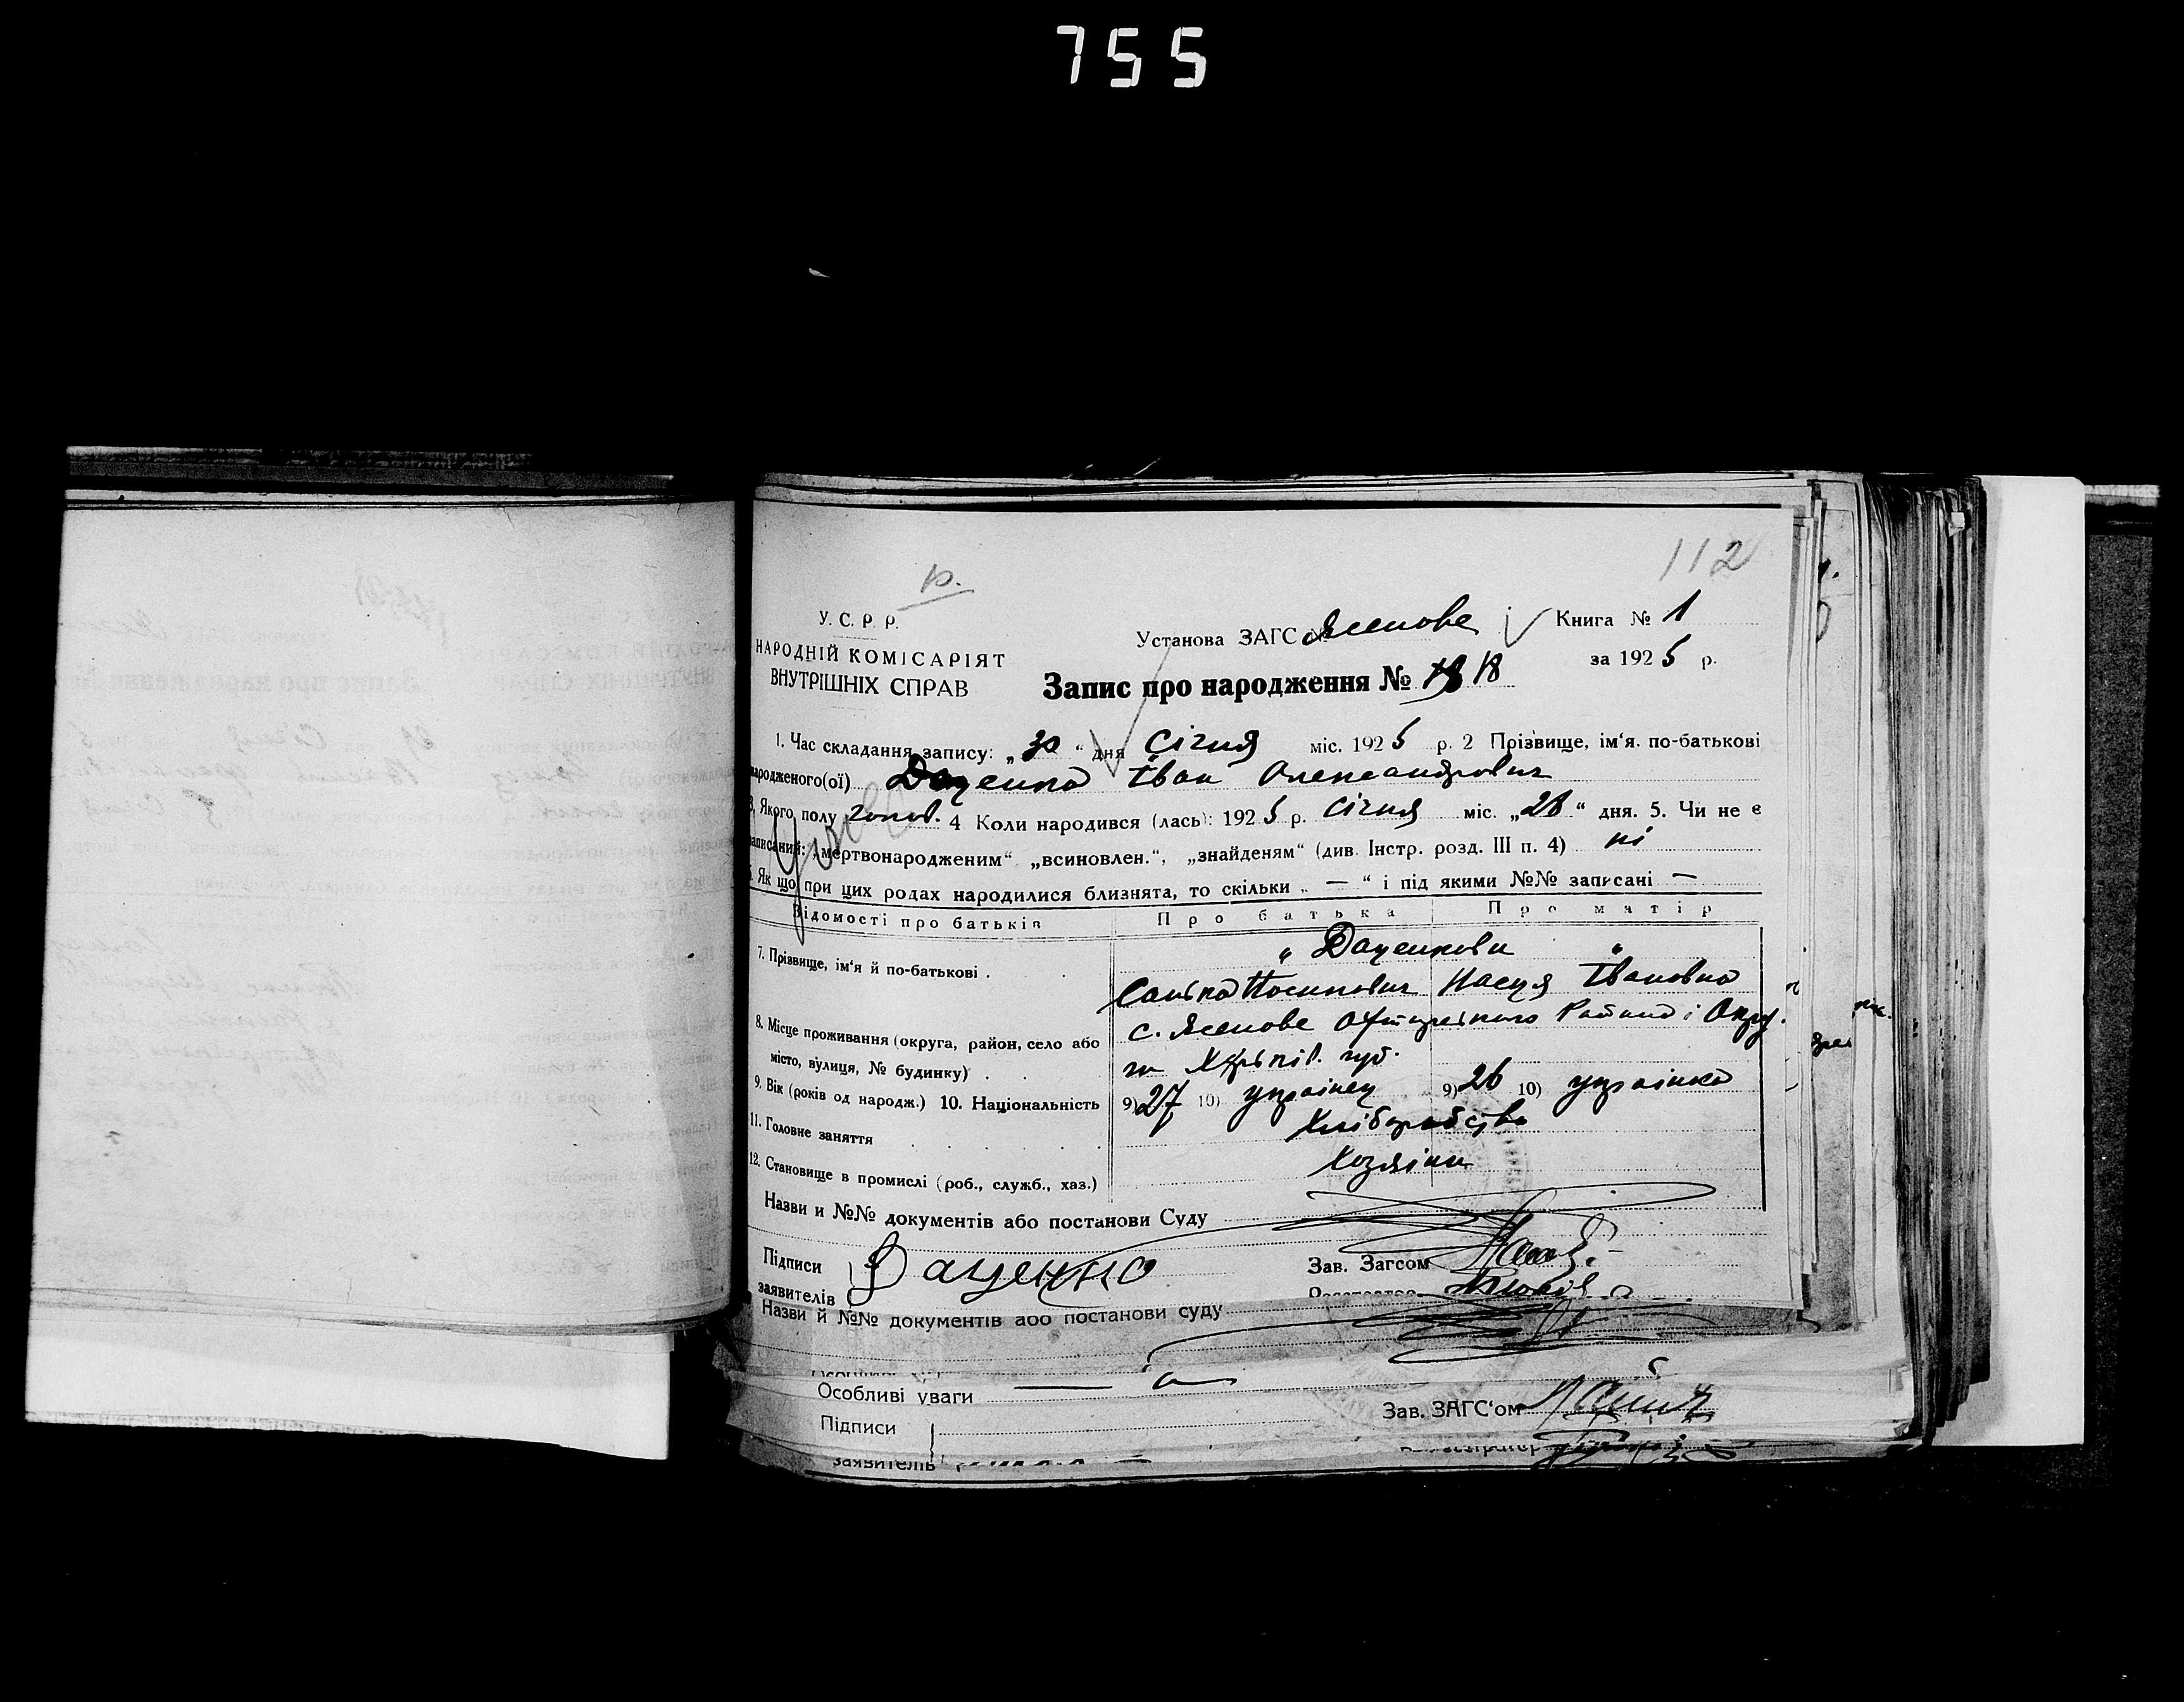 755
112
У. С. Р. Р.
НАРОДНІЙ КОМІСАРІЯТ
ВНУТРІШНІХ СПРАВ
Установа ЗАГС № Ясенове
Книга № 1
за 1925 р.
Запис про народження № 18
1. Час складання запису: „30“ дня Січня міс. 1925 р. 2 Прізвище, ім‘я. по-батькові
народженого(ої) Даценко Іван Олександрович
3. Якого полу чолов. 4 Коли народився (лась): 1925 р. Січня міс. „28“ дня. 5. Чи не є
записаний: „мертвонародженим“, „всиновлен.“, „знайденям“ (див. Інстр. розд. III п. 4) ні
6. Як що при цих родах народилися близнята, то скільки „ — “ і під якими №№ записані —
Відомості про батьків Про батька Про матір
7. Прізвище, ім‘я й по-батькові . „ Даценкови “
Насця Івановна
8. Місце проживання (округа, район, село або с. Ясенове Охтирського Району і Округ.
місто, вулиця, № будинку) . на Харьків. губ.
9. Вік (років од народж.) 10. Національність 9) 27 10) українец 9) 26 10) українка
11. Головне заняття Хліборобство
12. Становище в промислі (роб., служб., хаз.) Хозяіни
Назви и №№ документів або постанови Суду
Підписи Даценко Зав. Загсом
заявителів
Назви й №№ документів або постанови суду
Особливі уваги
Підписи Зав. ЗАГС‘ом
заявителів